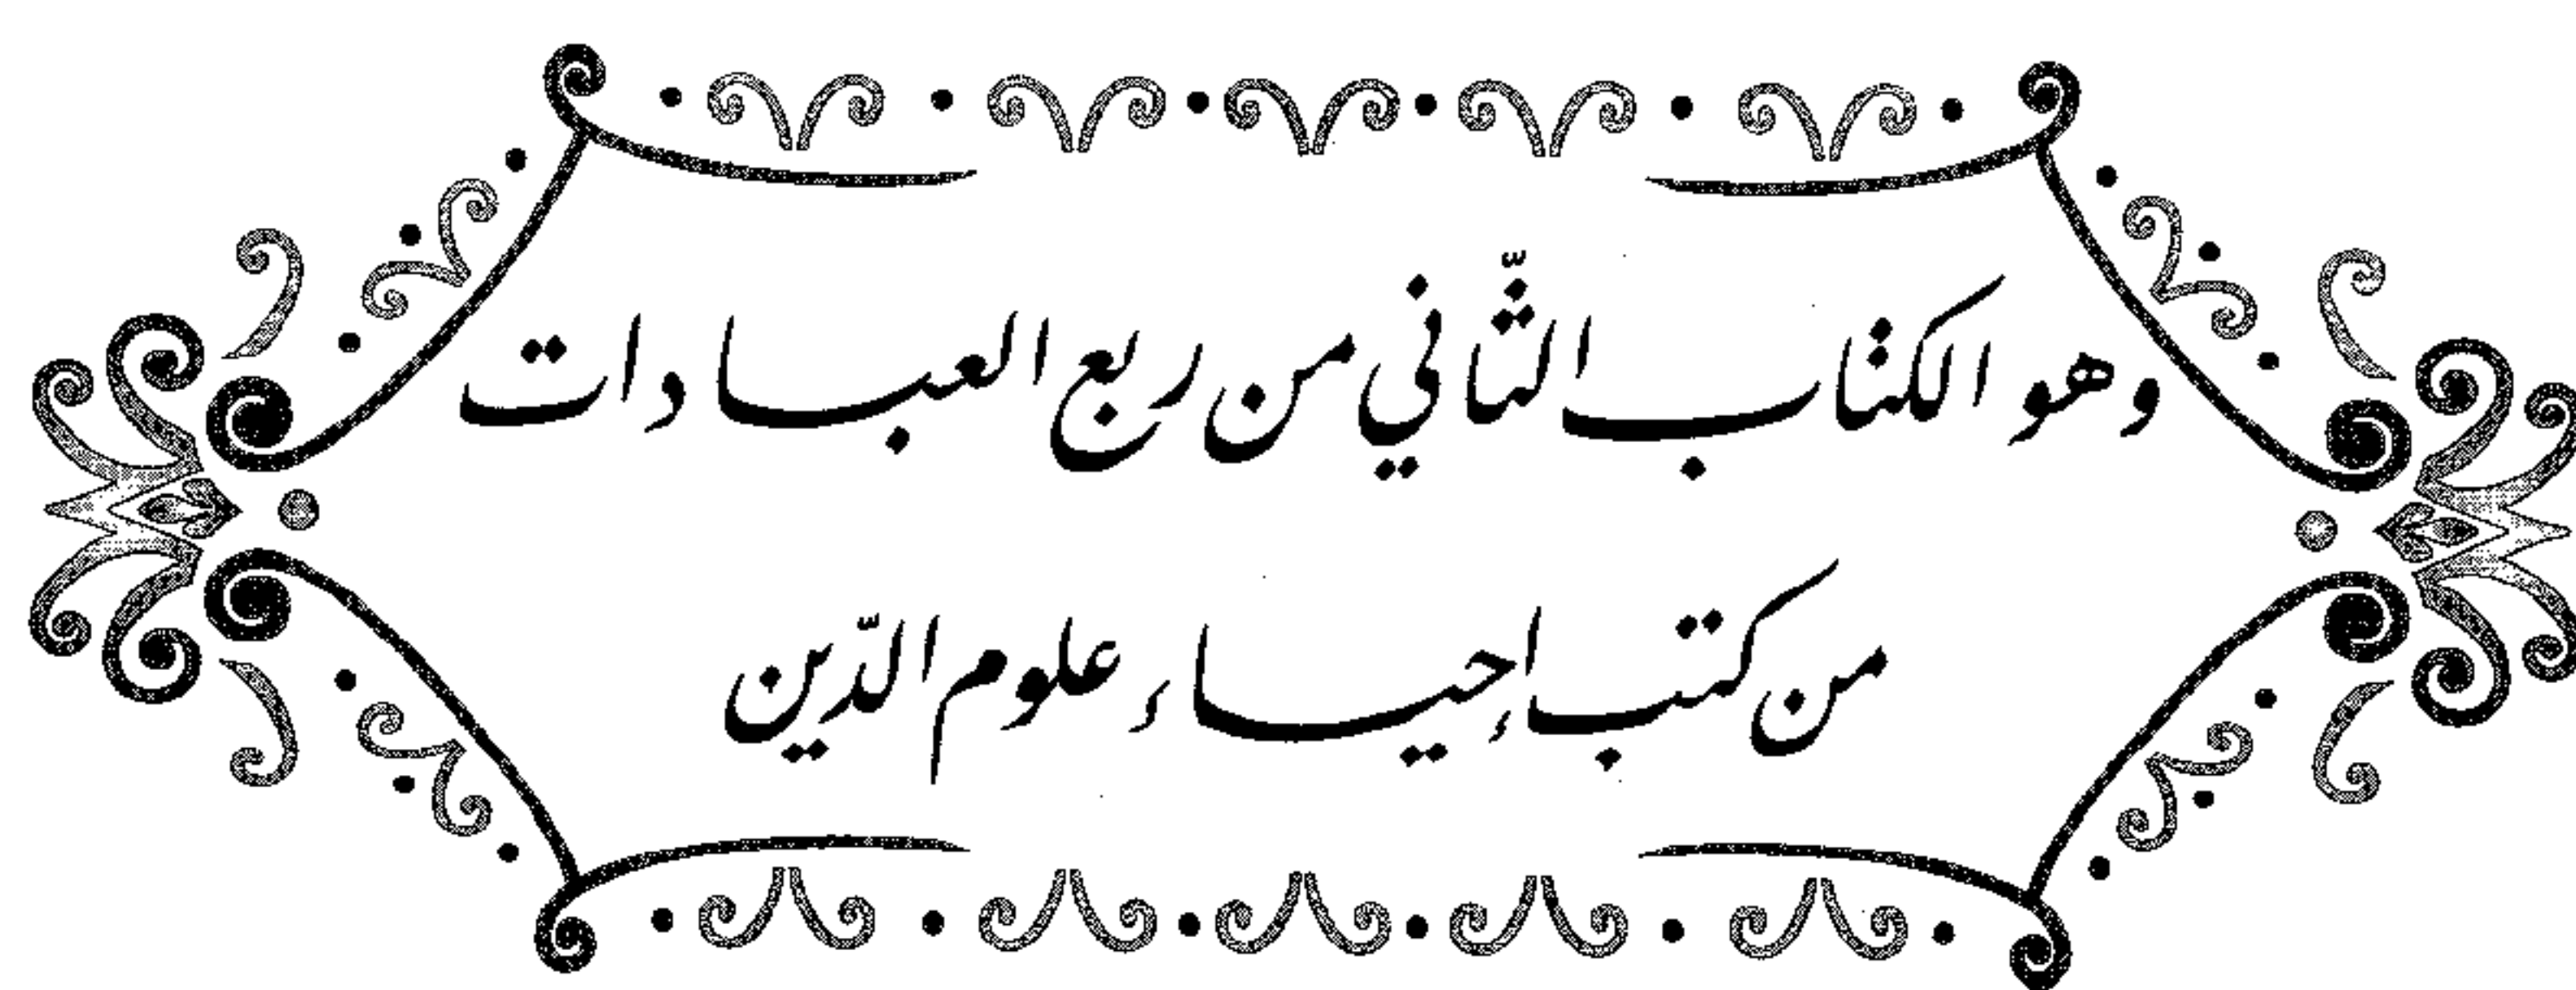 وهو الكتاب الثّاني من ربع العبادات
من كتب إحياء علوم الدّين